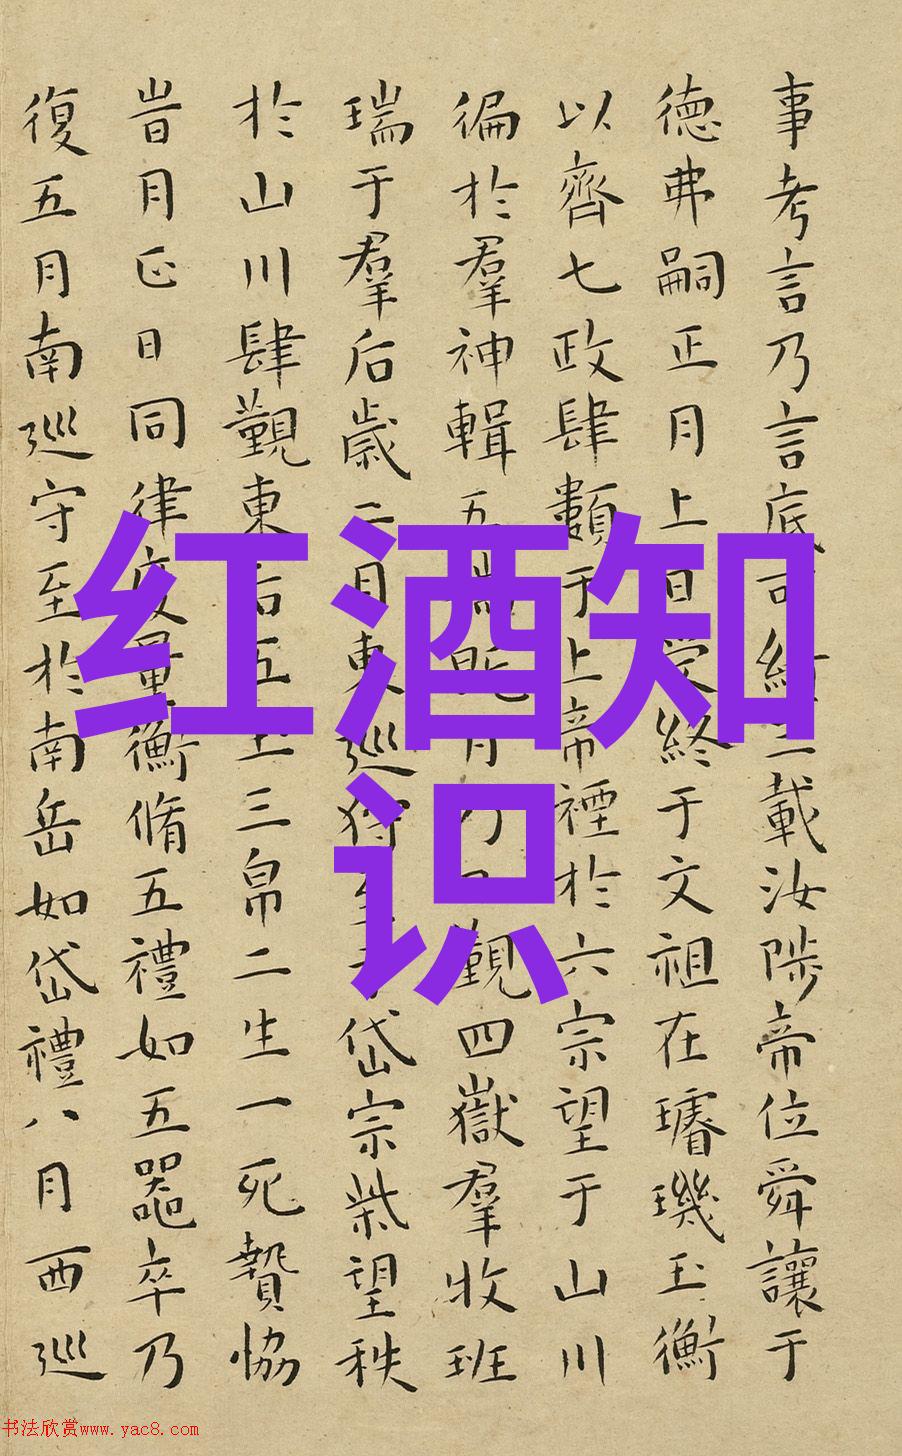 事考言乃言底可績三載汝陟帝位舜讓于
德弗嗣正月上日受終于文祖在璿璣玉衡
以齊七政肆類于上帝禋於六宗望于山川
徧於羣神輯五瑞既月乃日覲四嶽羣牧班
瑞于羣后歲二月東巡狩至于岱宗柴望秩
於山川肆覲東后五玉三帛二生一死贄協
旹月正日同律度量衡脩五禮如五器卒乃
復五月南巡守至於南岳如岱禮八月西巡
红酒知
识
书法欣赏www.yac8.com